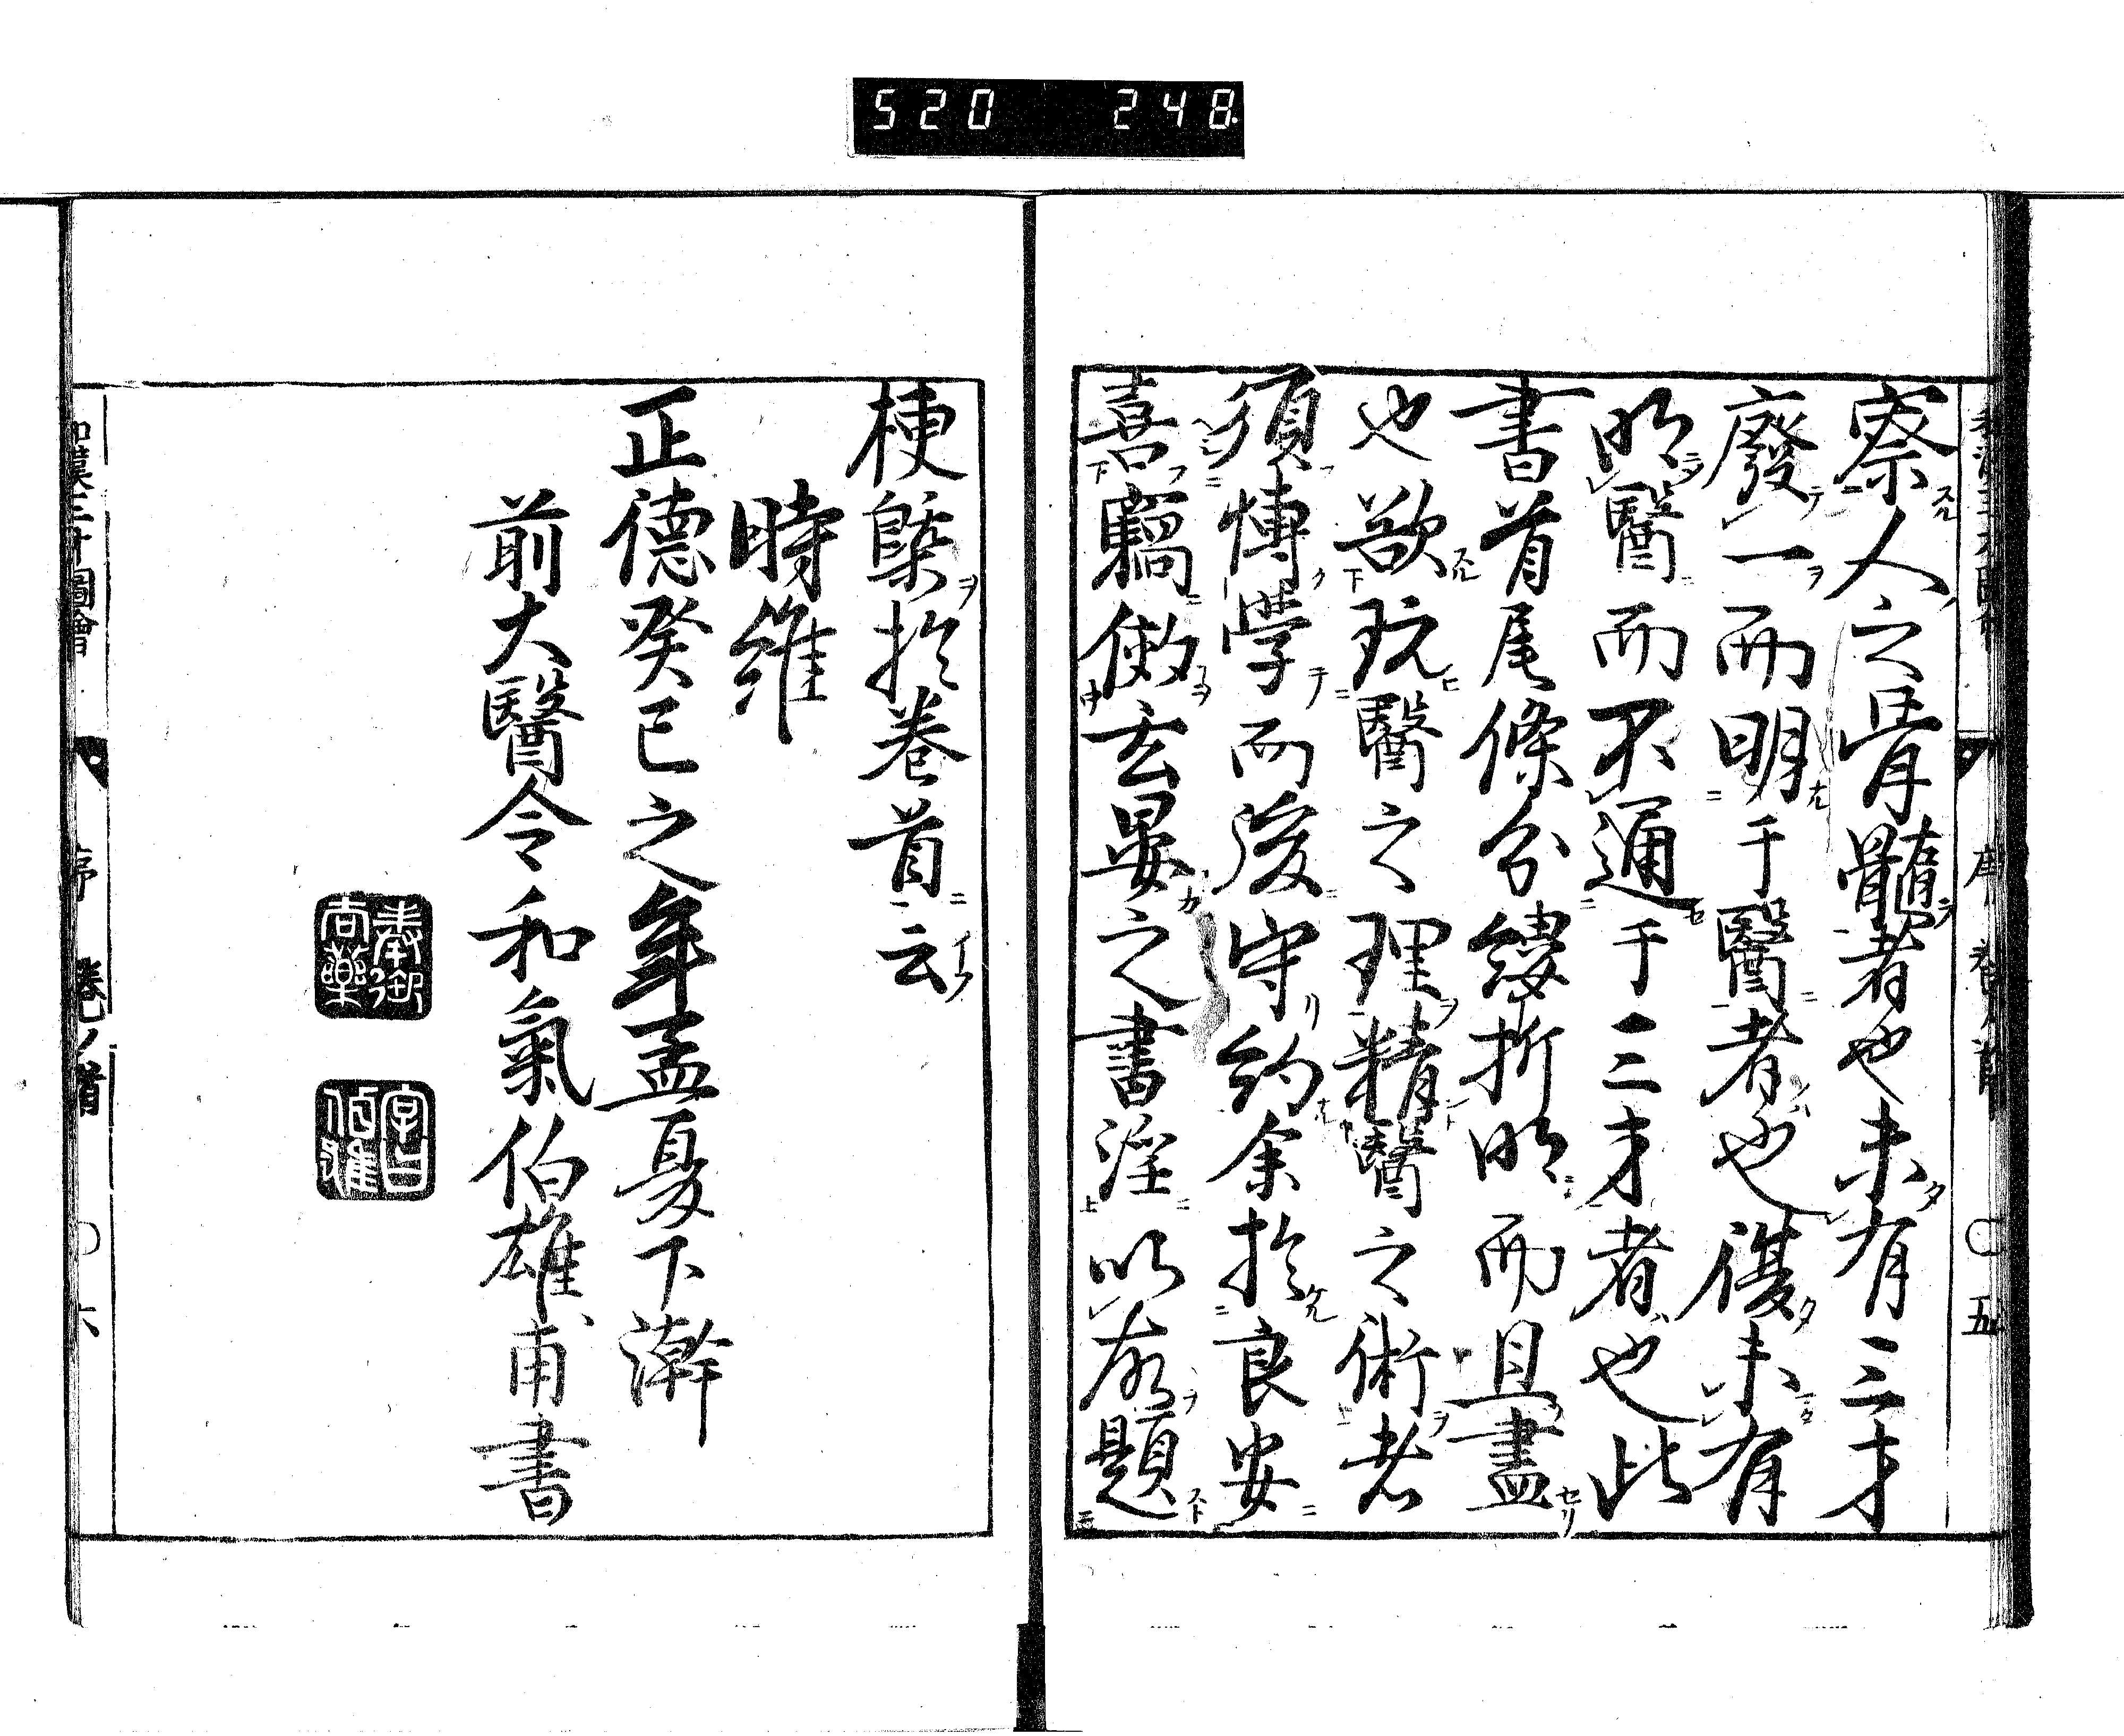 520 248
察人之骨髓者也未有三才
廢一而明于醫者也復未有
明醫而不通于三才者也此
書首尾條分縷折明而且盡
也欲玩醫之理精醫之術者
須博學而後守約余於良安
喜竊倣玄晏之書淫以故題
梗槩於卷首云
時維
正德癸巳之年孟夏下澣
前大醫令和氣伯雄甫書
奉御
尚藥
字曰
伯雄
和漢三才圖會 序 卷ノ首 〇六